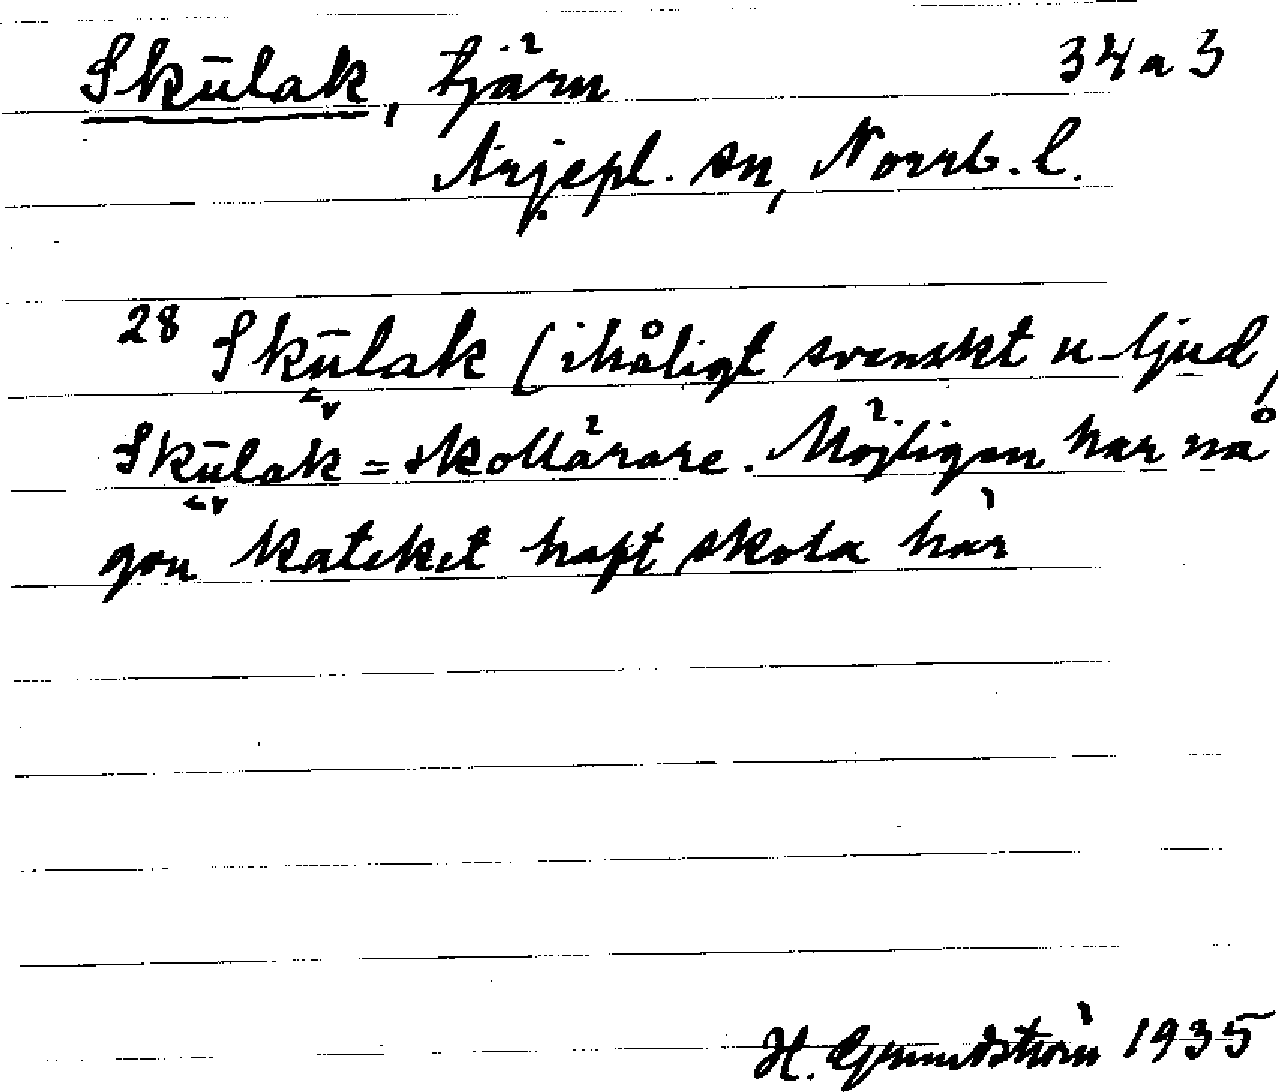 Skūlak, tjärn 34 a 3
Arjepl. sn, Norrb. l.
28 Skūlak (ihåligt svenskt u-ljud,
Skūlak = skollärare. Möjligen har nå
gon kateket haft skola här
H. Grundström 1935